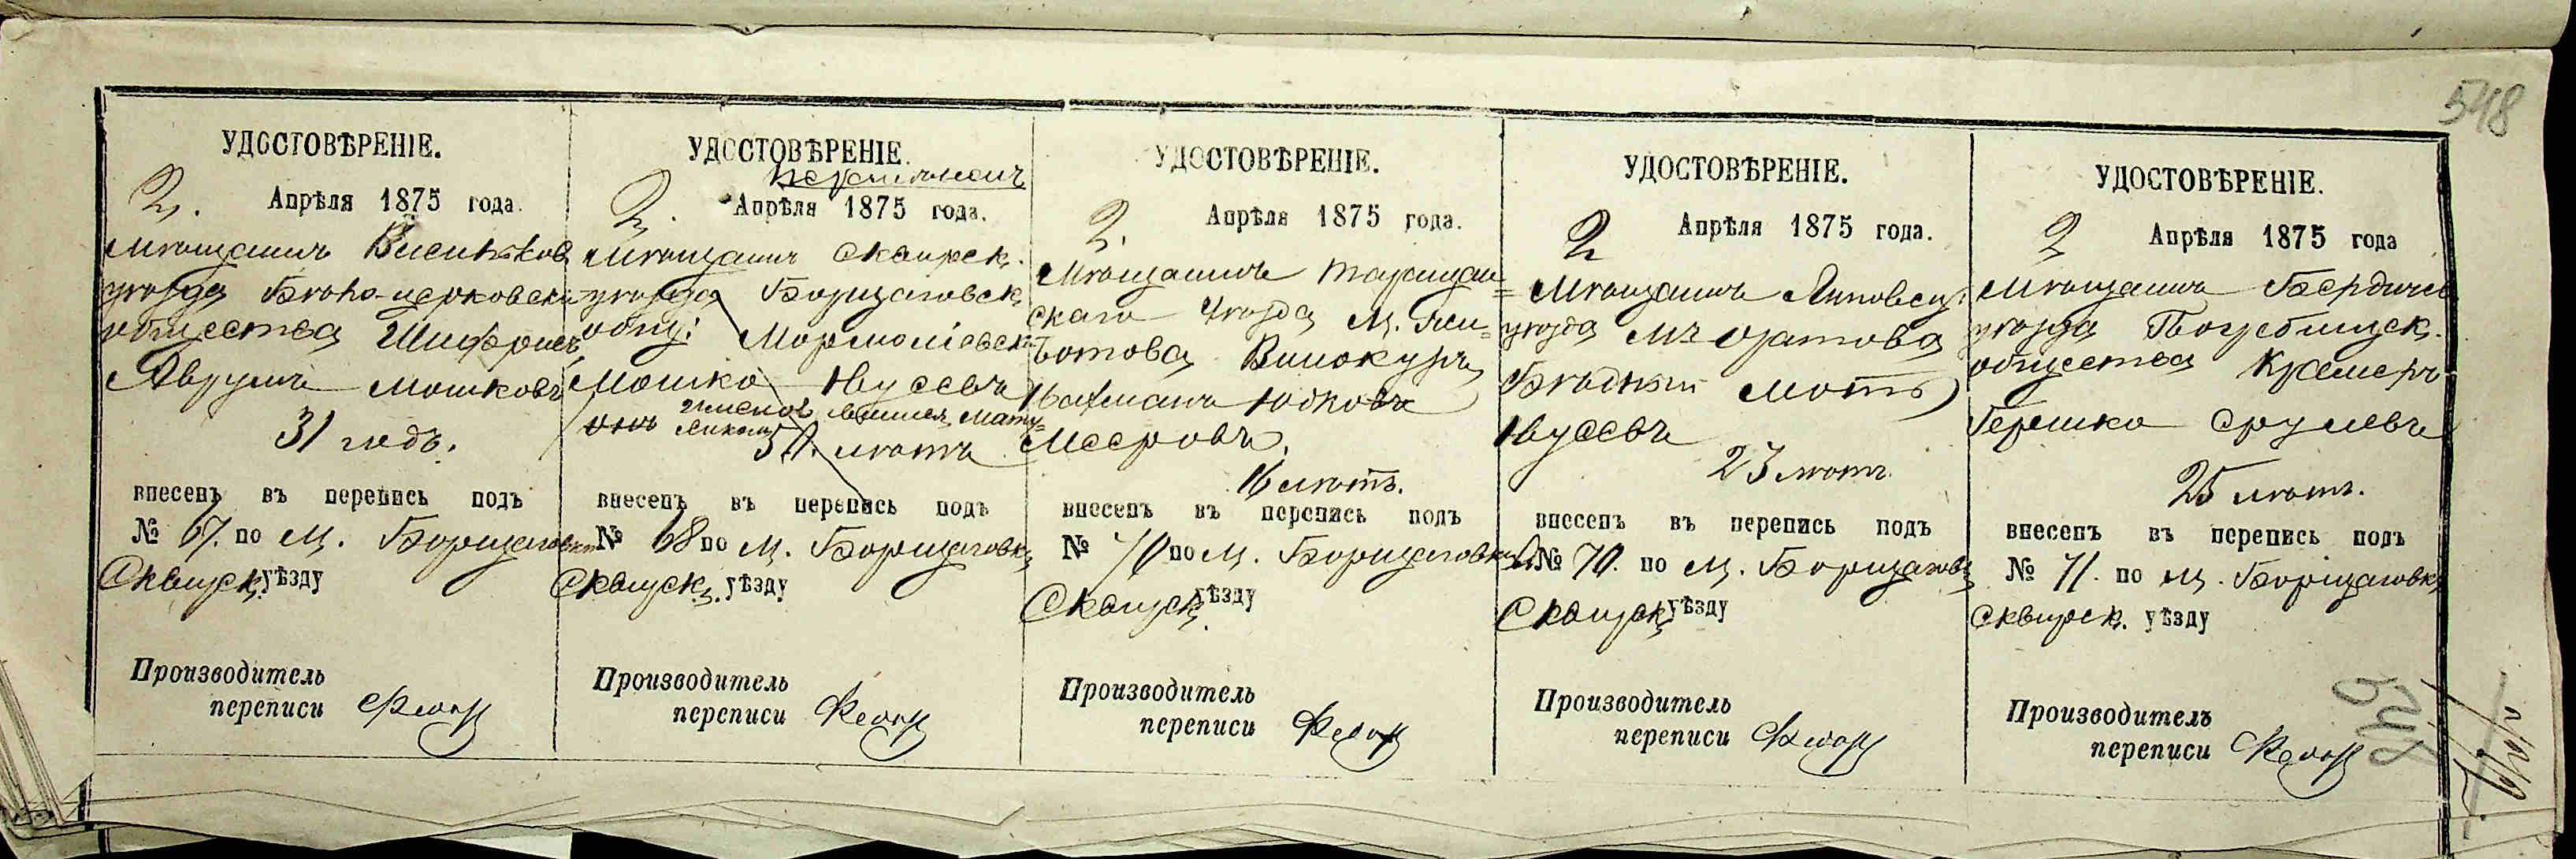 548
УДОСТОВѢРЕНІЕ.
2. Апрѣля 1875 года.
Мѣщанинъ Васильков.
уѣзда Бѣло-церковскаго
общества Шифринъ
Аврумъ Мошковъ
31 годъ.
внесенъ въ перепись подъ
№ 67. по м. Борщаговкѣ
Сквирск. уѣзду
Производитель
переписи
УДОСТОВѢРЕНІЕ.
2. Апрѣля 1875 года.
Мѣщанинъ Сквирск.
уѣзда Борщаговск.
общ:
Мошко Нусевъ
50. лѣтъ
внесенъ въ перепись подъ
№ 68 по м. Борщаговкѣ
Сквирск. уѣзду
Производитель
переписи
УДОСТОВѢРЕНІЕ.
2. Апрѣля 1875 года.
Мѣщанинъ Таращан-
скаго уѣзда м. Пя-
Винокуръ
Нахманъ Юдковъ
Мееровъ.
16 лѣтъ.
внесенъ въ перепись подъ
№ 70 по м. Борщаговкѣ
Сквирск. уѣзду
Производитель
переписи
УДОСТОВѢРЕНІЕ.
2 Апрѣля 1875 года.
Мѣщанинъ Липовец.
уѣзда мѣ Оратова
Бѣдный Мотъ
Нусевъ
23 лѣтъ
внесенъ въ перепись подъ
№ 70. по м. Борщаговкѣ
Сквирск. уѣзду
Производитель
переписи
УДОСТОВѢРЕНІЕ.
2 Апрѣля 1875 года
Мѣщанинъ Бердичев.
уѣзда Погребищск.
общества Крамеръ
Гершко Срулевъ
25 лѣтъ.
внесенъ въ перепись подъ
№ 71. по м. Борщаговкѣ
Сквирск. уѣзду
Производитель
переписи
548